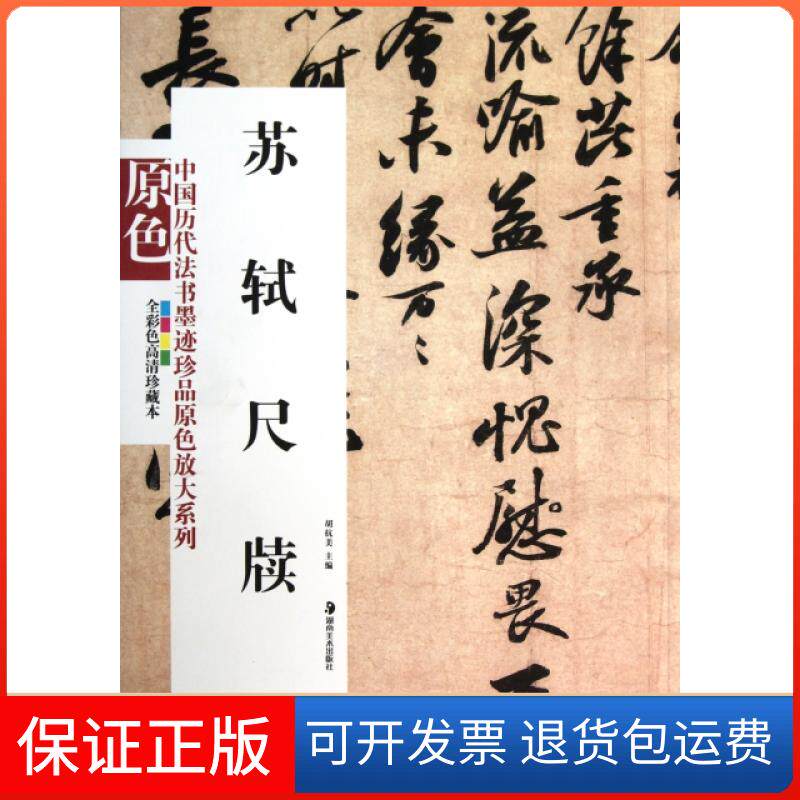 餘芘重承
流喻益深愧慰畏
會未缘万〻
時
長
苏轼尺牍
胡抗美 主编
湖南美术出版社
中国历代法书墨迹珍品原色放大系列
原色
全彩色高清珍藏本
保证正版
可开发票 退货包运费